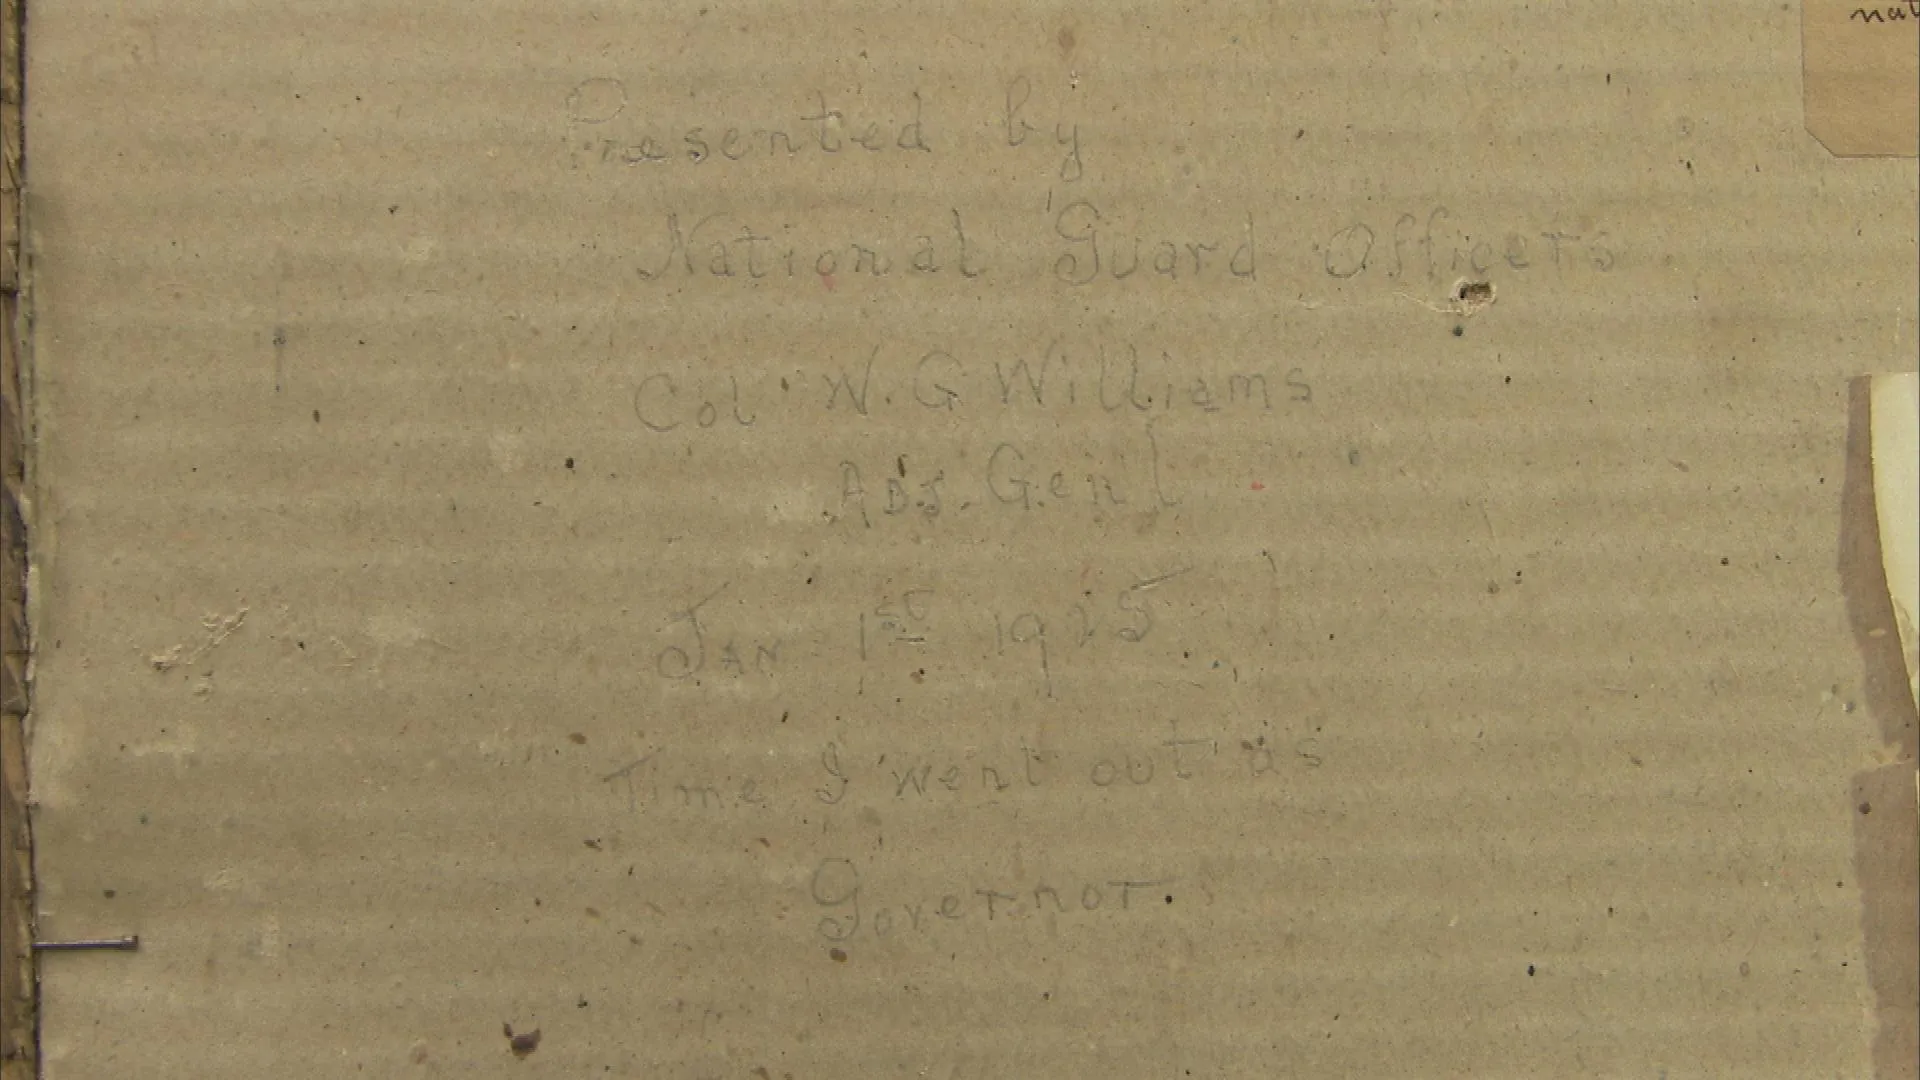 Presented by
National Guard Officers
Col. W. G Williams
Adj. Genl
Jan 1st 1925
Time I went out as
Governor.